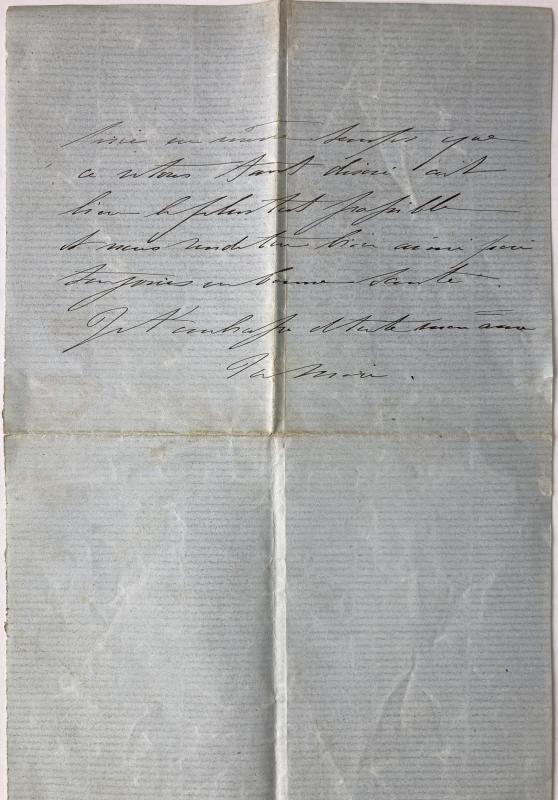 en même temps que
ce retour tant désiré ait
lieu le plus tot possible
et nous rende ton bien aimé père
toujours en bonne santé.
Je t'embrasse de toute mon âme
Ta mère.